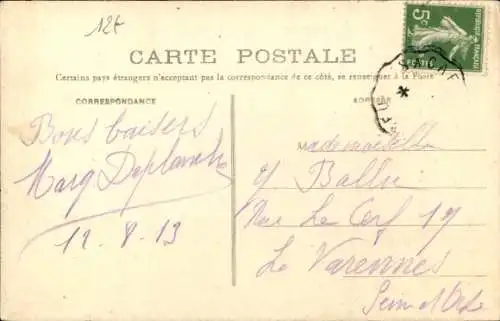 12t
5c
REPUBLIQUE FRANÇAISE
CARTE POSTALE
Certains pays étrangers n'acceptant pas la correspondance de ce côté, se renseigner à la Poste
CORRESPONDANCE
ADRESSE
Bons baisers
Marg
12-8-13
Mademoiselle
Y Ballu
Rue Le Cerf 19
La Varennes
Seine et Oise